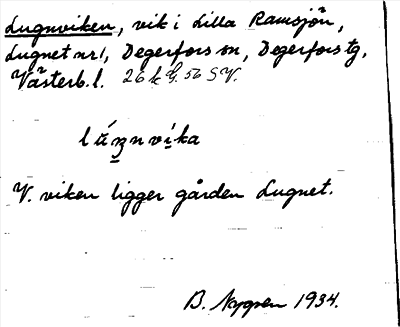 Lugnviken, vik i Lilla Ramsjön,
Lugnet nr 1, Degerfors sn, Degerfors tg,
Västerb. l. 26 k G. 56 S V.
V. viken ligger gården Lugnet.
B. Nygren 1934.